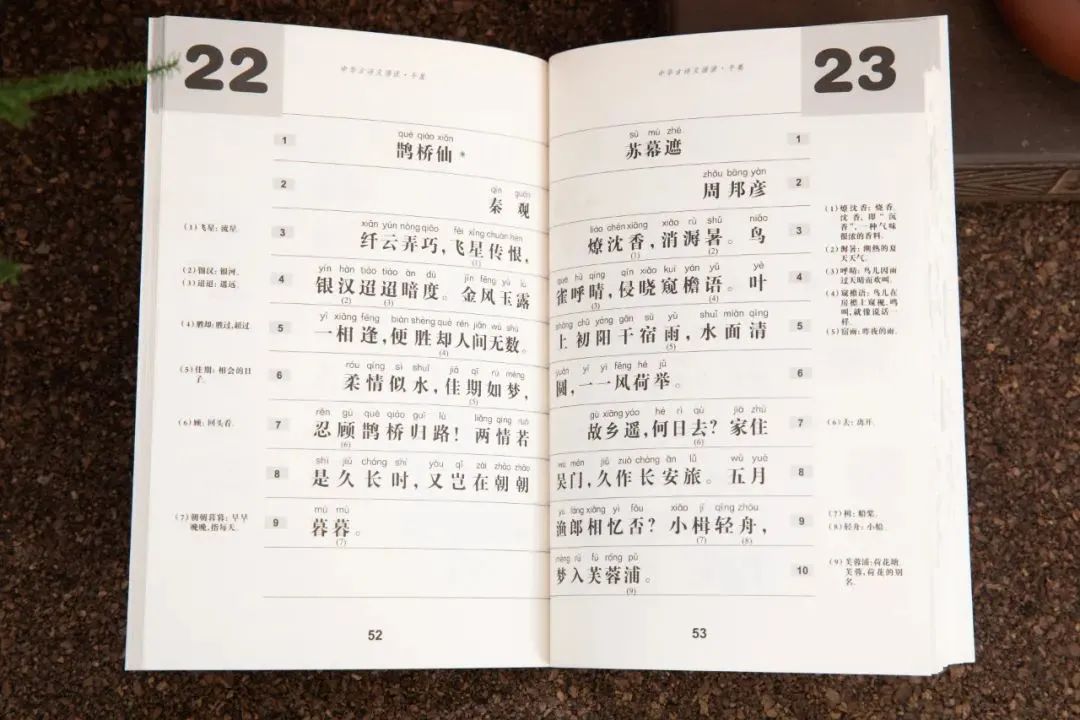 22
中华古诗文
1
què qiáo xiān
鹊桥仙*
2
qín guān
秦观
3
xiān yún nòng qiǎo fēi xīng chuán hèn
纤云弄巧，飞星传恨，
(1)
4
yín hàn tiáo tiáo àn dù jīn fēng yù lù
银汉迢迢暗度。金风玉露
(2) (3)
5
yì xiāng féng biàn shèng què rén jiān wú shù
一相逢，便胜却人间无数。
(4)
6
róu qíng sì shuǐ jiā qī rú mèng
柔情似水，佳期如梦，
(5)
7
rěn gù què qiáo guī lù liǎng qíng ruò
忍顾鹊桥归路！两情若
(6)
8
shì jiǔ cháng shí yòu qǐ zài zhāo zhāo
是久长时，又岂在朝朝
9
mù mù
暮暮。
(7)
(1)飞星：流星。
(2)银汉：银河。
(3)迢迢：遥远。
(4)胜却：胜过，超过
(5)佳期：相会的日
子。
(6)顾：回头看。
(7)朝朝暮暮：早早
晚晚，指每天。
52
23
中华古诗文
sū mù zhē
苏幕遮
1
zhōu bāng yàn
周邦彦
2
liáo chén xiāng xiāo rù shǔ niǎo
燎沈香，消溽暑。鸟
(1) (2)
3
què hū qíng qīn xiǎo kuī yán yǔ yè
雀呼晴，侵晓窥檐语。叶
(3) (4)
4
shàng chū yáng gān sù yǔ shuǐ miàn qīng
上初阳干宿雨，水面清
(5)
5
yuán yī yī fēng hé jǔ
圆，一一风荷举。
6
gù xiāng yáo hé rì qù jiā zhù
故乡遥，何日去？家住
(6)
7
wú mén jiǔ zuò cháng ān lǚ wǔ yuè
吴门，久作长安旅。五月
8
yú láng xiāng yì fǒu xiǎo jí qīng zhōu
渔郎相忆否？小楫轻舟，
(7) (8)
9
mèng rù fú róng pǔ
梦入芙蓉浦。
(9)
10
(1)燎沈香：烧香。
沈香，即“沉
香”，一种气味
很浓的香料。
(2)溽暑：潮热的夏
天天气。
(3)呼晴：鸟儿因雨
过天晴而欢叫。
(4)窥檐语：鸟儿在
房檐上窥视、鸣
叫，就像说话一
样。
(5)宿雨：昨夜的雨。
(6)去：离开。
(7)楫：船桨。
(8)轻舟：小船。
(9)芙蓉浦：荷花塘。
芙蓉，荷花的别
名。
53